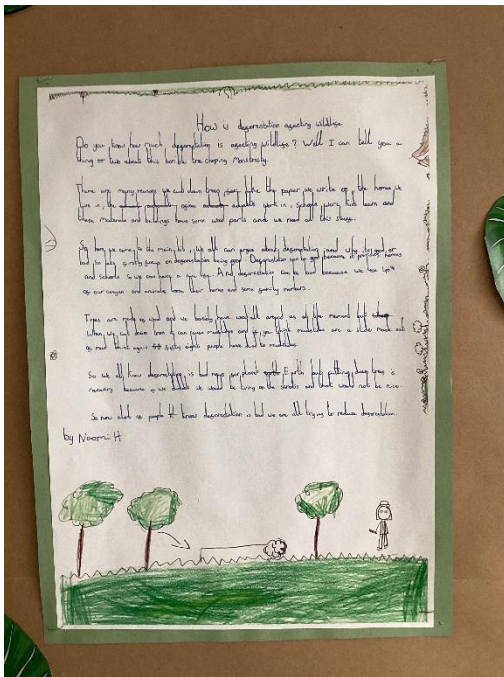 How is deforestation affecting wildlife
Do you know how much deforestating is affecting wildlife? Well I can tell you a
thing or two about this horrible tree choping monstrosity.
There are many reasons we cut down trees like the paper we write on, the homes we
live in, the adults work in, schools were kids learn and
these materials and buildings have some wood parts and we need all this stuff.
So here we come to the main bit, we all can argue about deforestating and why its good or
bad so lets firstly focus on deforestation being good. Deforestation can be good because it provides homes
and schools so we can have a life. And deforestation can be bad because we lose
of our oxygen and animals lose their homes and some family members.
Trees are made of wood and we basicly have wood all around us at the moment but
when we cut down trees it can cause mudslides and if you think mudslides are a slide made out
of mud think again sixty eight people have died to mudslides.
So we all know deforestating is bad for our planet Earth but cutting down trees is
necessary because if we we would be living on the streets and that would not be nice.
So now alot of people know deforestation is bad we are all trying to reduce deforestation.
by Naomi H